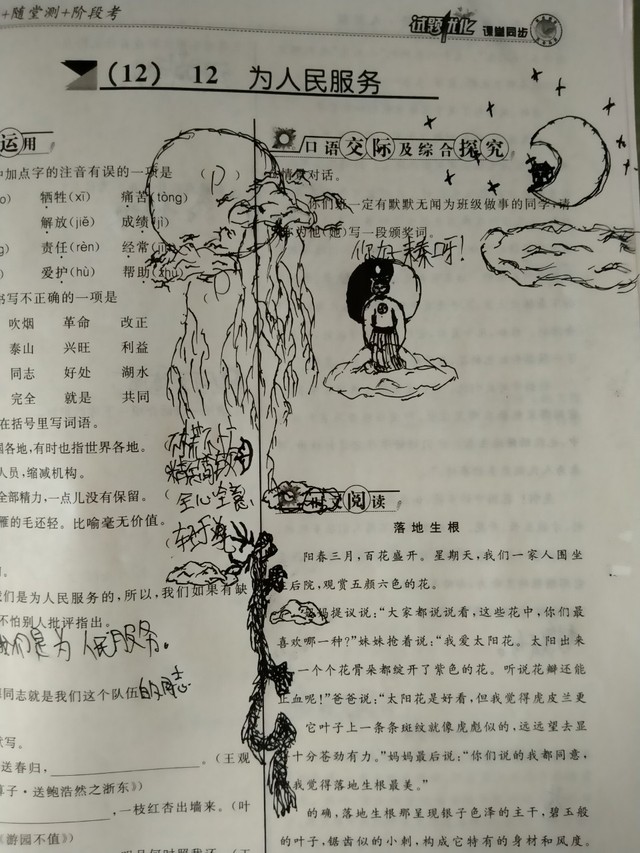 +随堂测+阶段考
试题优化 课堂同步
(12) 12 为人民服务
运用
中加点字的注音有误的一项是 ( D )
牺牲(xī) 痛苦(tòng)
解放(jiě) 成绩(jì)
责任(rèn) 经常(jīn
爱护(hù) 帮助(zhù)
书写不正确的一项是 ( D
吹烟 革命 改正
泰山 兴旺 利益
同志 好处 湖水
完全 就是 共同
在括号里写词语。
国各地,有时也指世界各地。
人员,缩减机构。
全部精力,一点儿没有保留。
(全心全意)
雁的毛还轻。比喻毫无价值。
们是为人民服务的,所以,我们如果有缺
不怕别人批评指出。
们是为人民服务。
同志就是我们这个队伍的同志
默写。
送春归,。(王观
算子·送鲍浩然之浙东》)
,一枝红杏出墙来。(叶
《游园不值》)
口语交际及综合探究
情景对话。
你们班一定有默默无闻为级做事的同学,请
你为他(她)写一段颁奖词。
时文阅读
落地生根
阳春三月,百花盛开。星期天,我们一家人围坐
后院,观赏五颜六色的花。
妈提议说:“大家都说说看,这些花中,你们最
喜欢哪一种?”妹妹抢着说:“我爱太阳花。太阳出来
一个个花骨朵都绽开了紫色的花。听说花瓣还能
止血呢!”爸爸说:“太阳花是好看,但我觉得虎皮兰更
它叶子上一条条斑纹就像虎彪似的,远远望去显
十分苍劲有力。”妈妈最后说:“你们说的我都同意,
我觉得落地生根最美。”
的确,落地生根那呈现银子色泽的主干,碧玉般
的叶子,锯齿似的小刺,构成它特有的身材和风度。